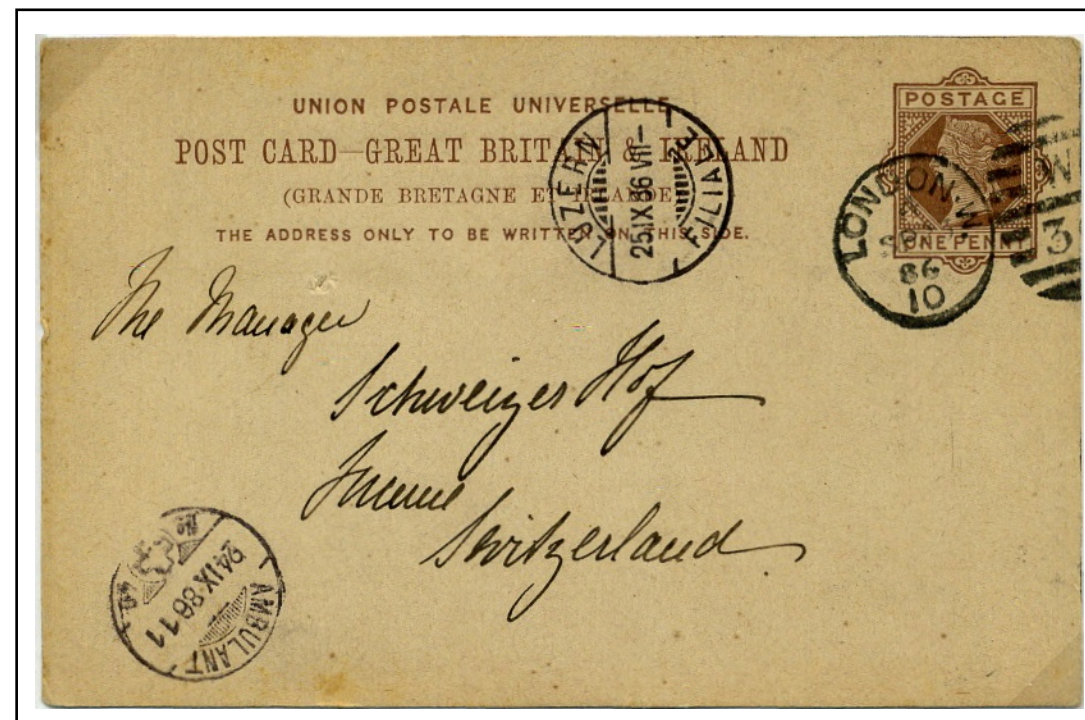 UNION POSTALE UNIVERSELLE
POST CARD—GREAT BRITAIN & IRELAND
(GRANDE BRETAGNE ET IRLANDE)
THE ADDRESS ONLY TO BE WRITTEN ON THIS SIDE.
POSTAGE
ONE PENNY
LUZERN
25.IX.86.VII-
FILIALE
LONDON.W.
SP
86
10
W
3
The Manager
Schweizer Hof
Lucerne
Switzerland
24.IX.86 11
AMBULANT
No